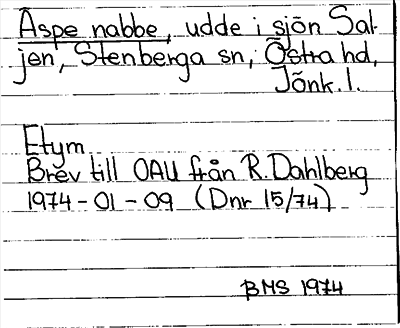 Äspe nabbe, udde i sjön Sal-
jen, Stenberga sn, Östra hd,
Jönk. l.
Etym.
Brev till OAU från R. Dahlberg
1974-01-09 (Dnr 15/74)
BMS 1974